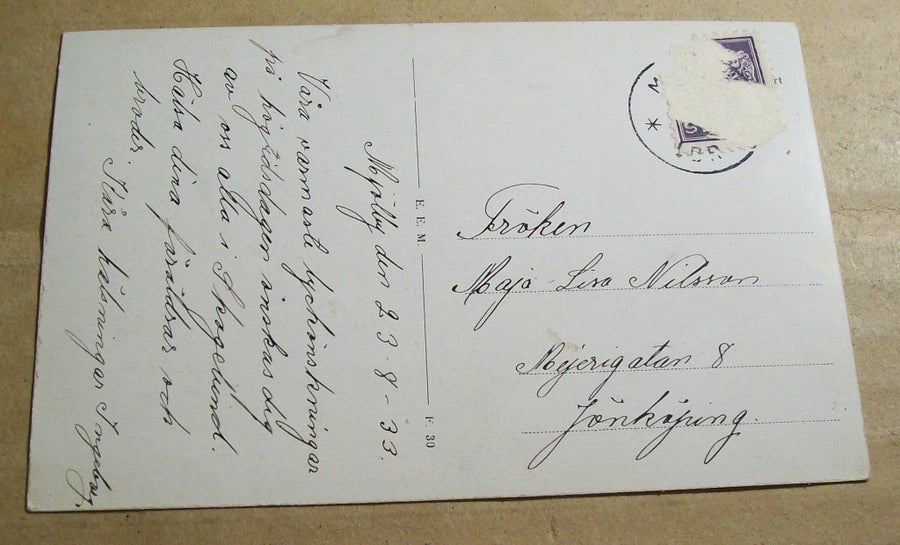 Mjölby den 23-8-33.
Våra varmaste lyckönskningar
på högtidsdagen önskas dig
av oss alla i Skogslund.
Hälsa dina föräldrar och
broder. Kära hälsningar Ingeborg.
E. E. M.
F. 30
Fröken
Maja-Lisa Nilsson
Mejerigatan 8
Jönköping.